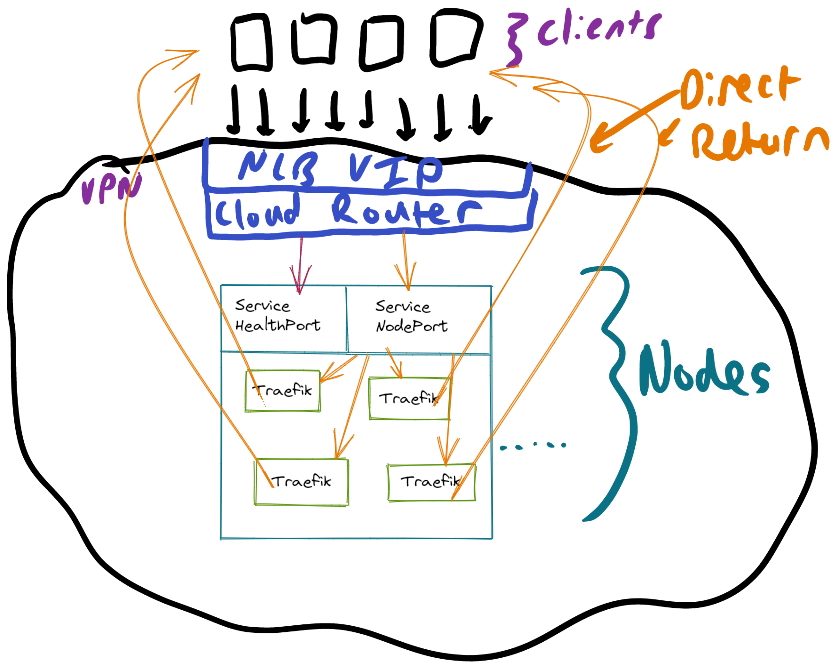 clients
Direct
Return
NLB VIP
VPN
Cloud Router
Service
HealthPort
Service
NodePort
Nodes
Traefik
Traefik
.....
Traefik
Traefik